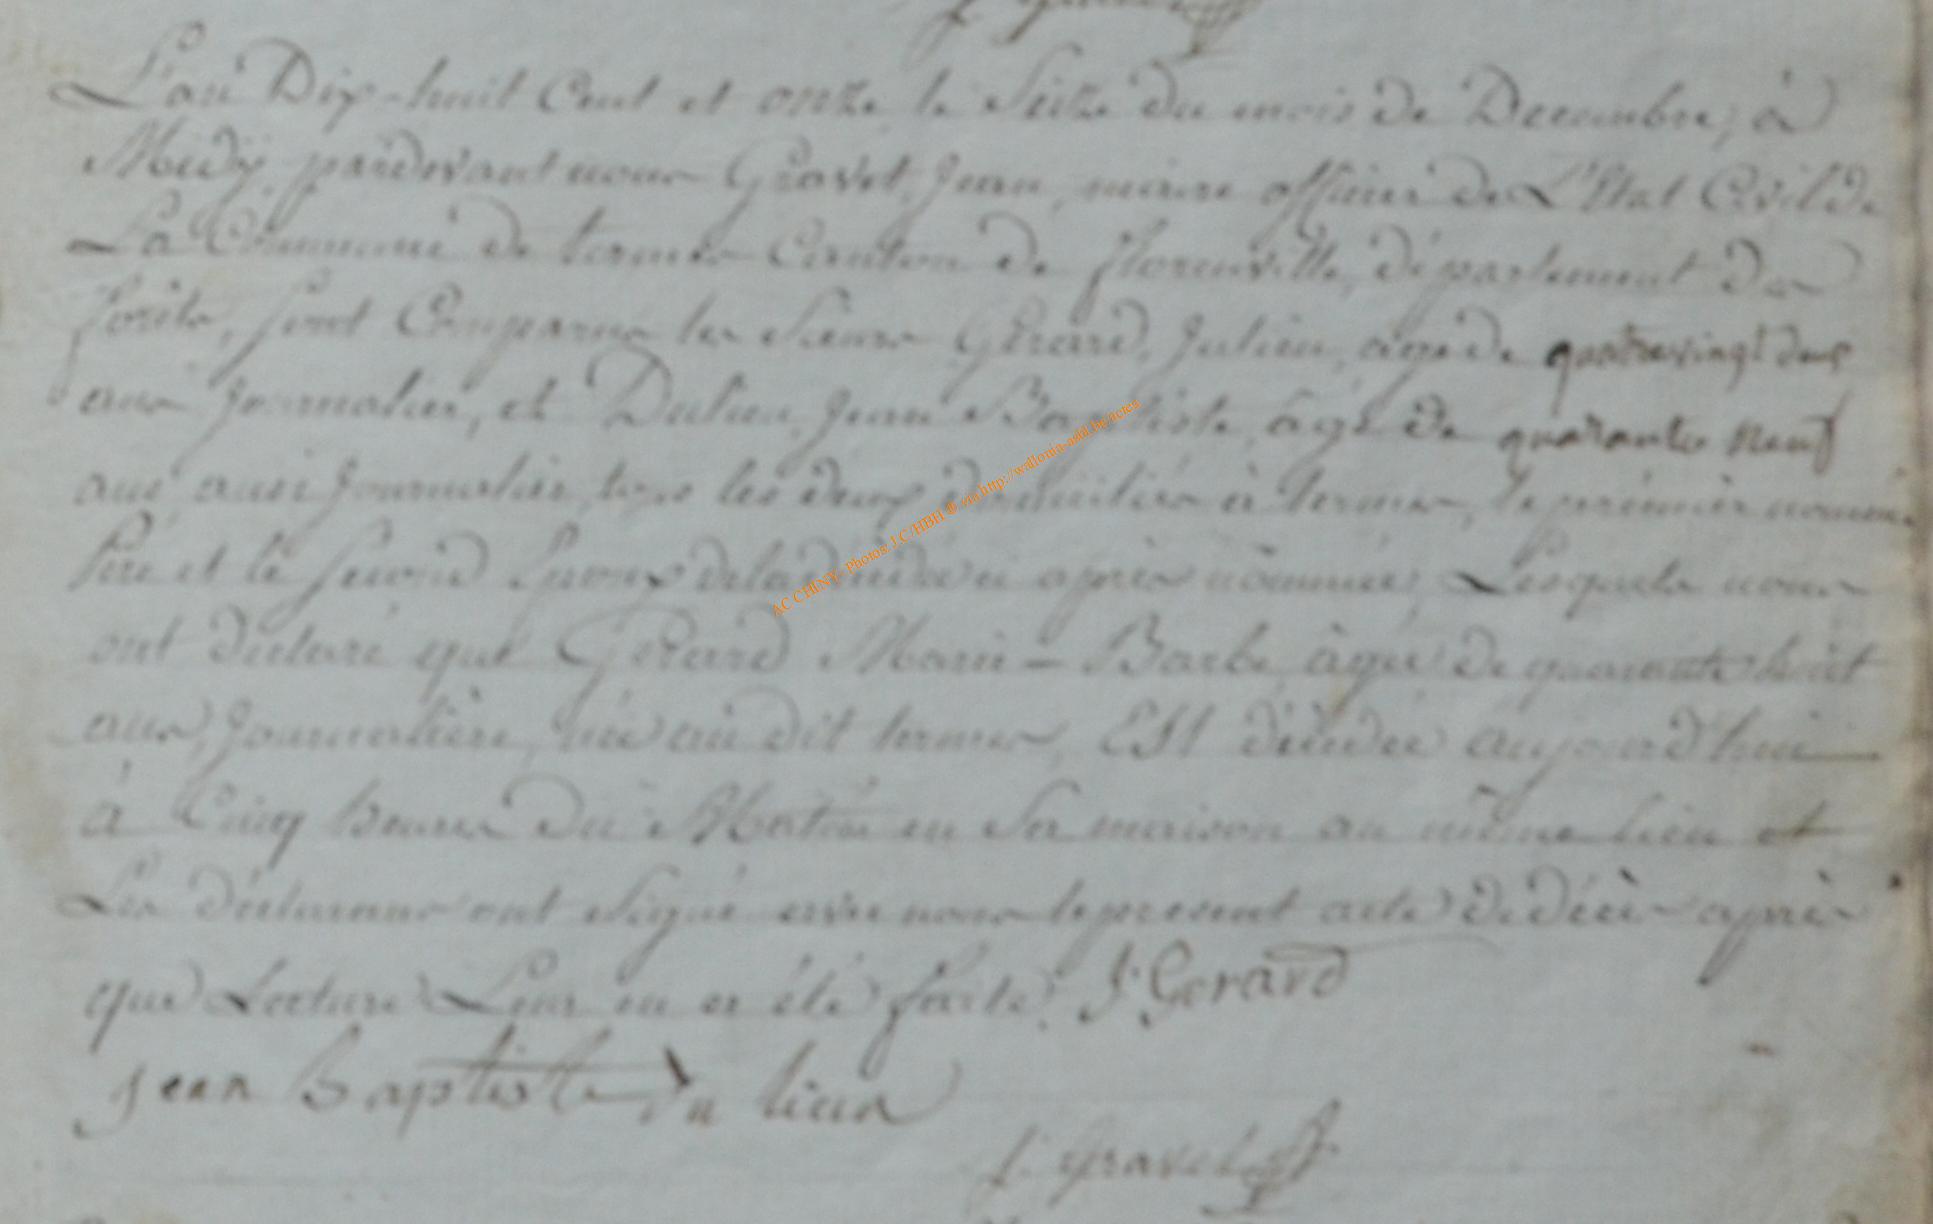 L'an Dix-huit Cent et onze le Seize du mois de Decembre, à
Midy, pardevant nous Gravet, Jean, maire officier de L'Etat Civil de
La Commune de termes Canton de florenville, département des
forêts, sont Comparus les Sieurs Gérard, Julien, agé de quatrevingt deux
ans Journalier, et Dulieu, Jean Baptiste, âgé de quarante neuf
ans aussi Journalier, tous les deux domiciliés à termes, le prémier nommé
Père et le second Epoux de la décédée ci après nommée, Lesquels nous
ont déclaré que Gérard Marie-Barbe âgée de quarante huit
ans, Journalière, née au dit termes, Est décédée aujourd'hui
à Cinq heures du Matin en Sa maison au même lieu et
Les déclarans ont Signé avec nous le present acte de décès après
que Lecture Leur en a été faite. J. Gerard
jean Baptiste du lieux
J. Gravet
AC CHINY- Photos: J.C./HBH © via http://wallonia-asbl.be/actes